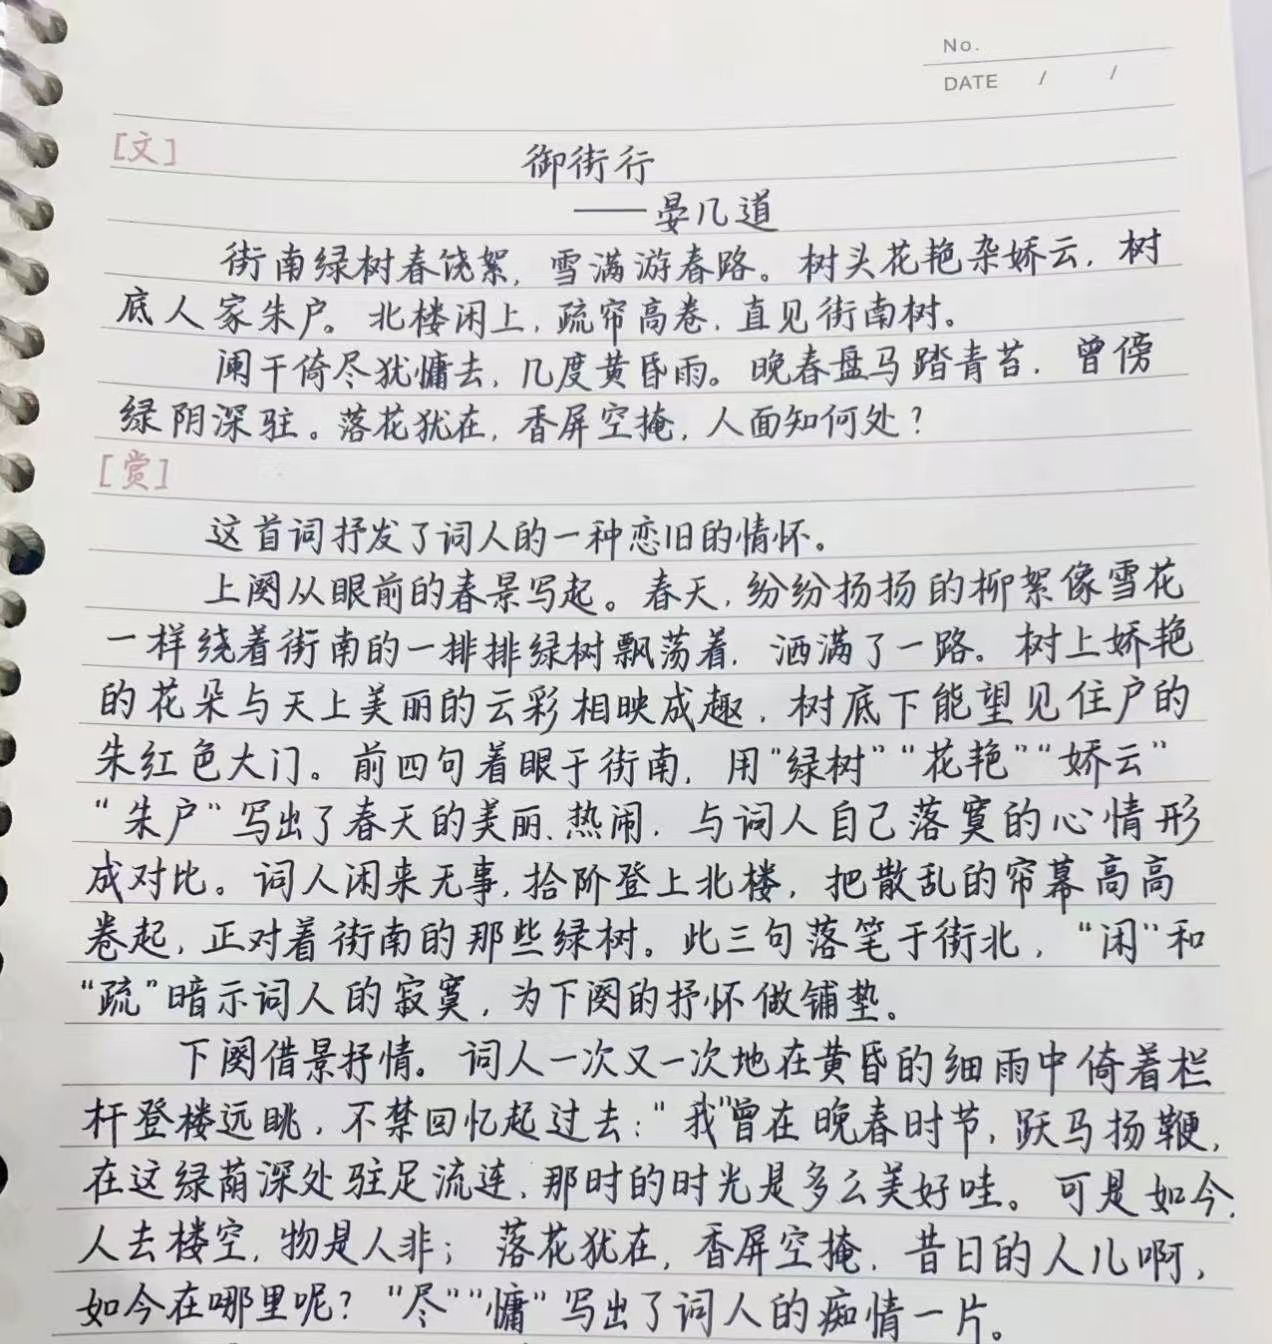 No.
DATE / /
[文]
御街行
——晏几道
街南绿树春饶絮，雪满游春路。树头花艳杂娇云，树
底人家朱户。北楼闲上，疏帘高卷，直见街南树。
阑干倚尽犹慵去，几度黄昏雨。晚春盘马踏青苔，曾傍
绿阴深驻。落花犹在，香屏空掩，人面知何处？
[赏]
这首词抒发了词人的一种恋旧的情怀。
上阕从眼前的春景写起。春天，纷纷扬扬的柳絮像雪花
一样绕着街南的一排排绿树飘荡着，洒满了一路。树上娇艳
的花朵与天上美丽的云彩相映成趣，树底下能望见住户的
朱红色大门。前四句着眼于街南，用“绿树”“花艳”“娇云”
“朱户”写出了春天的美丽、热闹，与词人自己落寞的心情形
成对比。词人闲来无事，拾阶登上北楼，把散乱的帘幕高高
卷起，正对着街南的那些绿树。此三句落笔于街北，“闲”和
“疏”暗示词人的寂寞，为下阕的抒怀做铺垫。
下阕借景抒情。词人一次又一次地在黄昏的细雨中倚着栏
杆登楼远眺，不禁回忆起过去：“我”曾在晚春时节，跃马扬鞭，
在这绿荫深处驻足流连，那时的时光是多么美好哇。可是如今，
人去楼空，物是人非；落花犹在，香屏空掩，昔日的人儿啊，
如今在哪里呢？“尽”“慵”写出了词人的痴情一片。